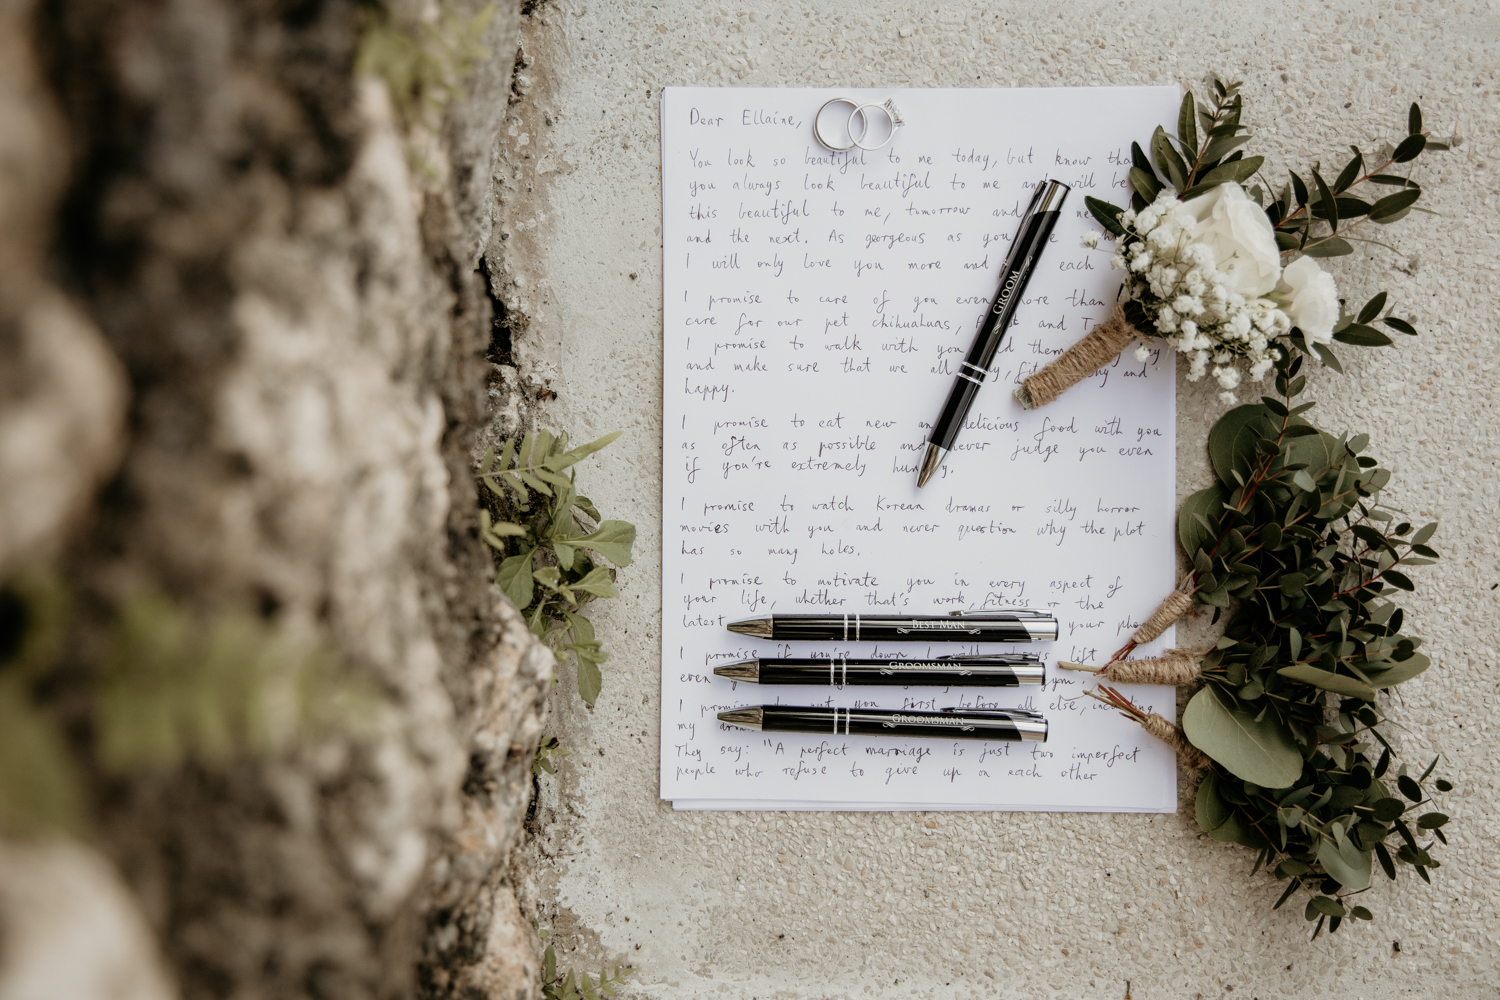 Dear Ellaine,
You look so beautiful to me today, but know that
you always look beautiful to me and will be
this beautiful to me, tomorrow and
and the next. As gorgeous as you
I will only love you more and each
I promise to care of you even more than
care for our pet chihuahuas, and
I promise to walk with you and them
and make sure that we all and
happy.
I promise to eat new and delicious food with you
as often as possible and never judge you even
if you're extremely hungry.
I promise to watch Korean dramas or silly horror
movies with you and never question why the plot
has so many holes.
I promise to motivate you in every aspect of
your life, whether that's work, fitness or the
latest your
I promise if you're down, I will always lift you
even gym.
I promise to put you first before all else, including
my
They say: "A perfect marriage is just two imperfect
people who refuse to give up on each other
GROOM
BEST MAN
GROOMSMAN
GROOMSMAN